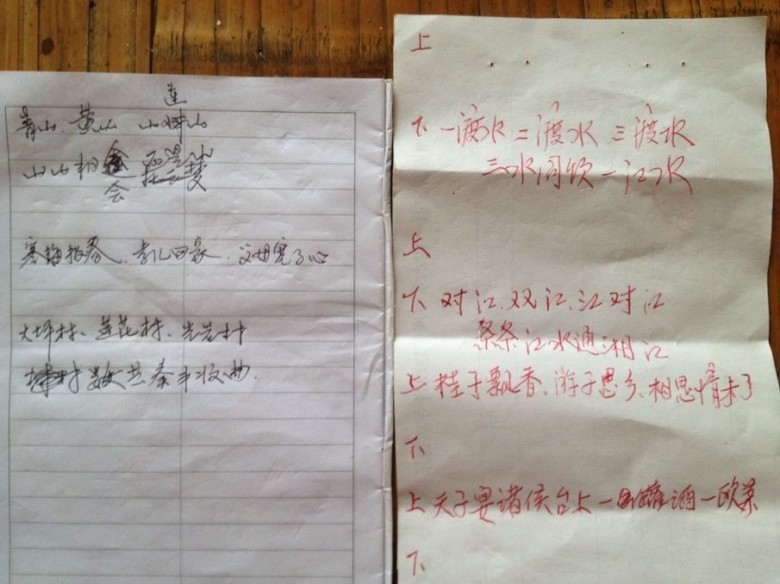 青山、黄山 山连山
山山相会
寒梅报春、李儿回家、父母宽了心
大坪村、莲花村、岩岩村
村村数共奏丰收曲.
上
下 一渡水 二渡水 三渡水
三水同饮一江水
上
下 对江、双江、江对江
条条江水通湘江
上 桂子飘香、游子思乡、相思情未了
下
上 天子宴诸侯台上一酒一欧菜
下